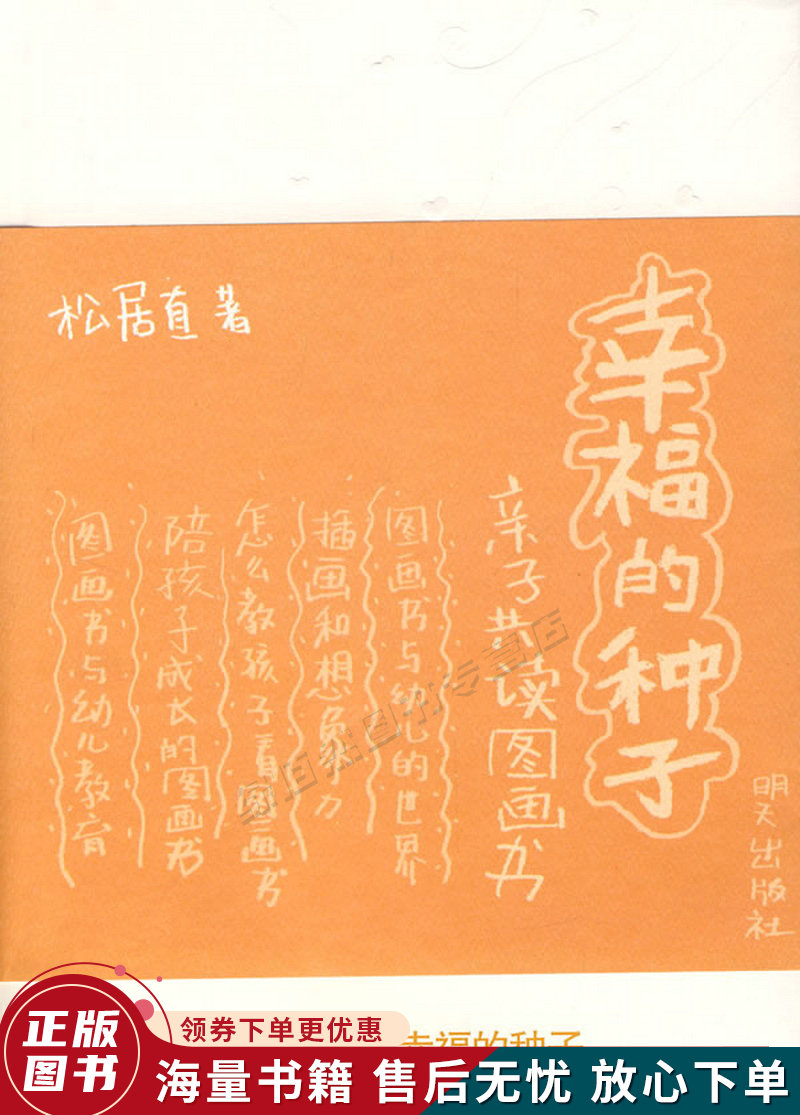 松居直 著
幸福的种子
亲子共读图画书
图画书与幼儿的世界
插画和想象力
怎么教孩子看图画书
陪孩子成长的图画书
图画书与幼儿教育
明天出版社
正版
图书
领券下单更优惠
幸福的种子
海量书籍 售后无忧 放心下单